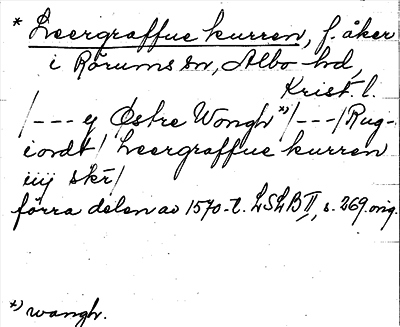 * Leergraffue kurren, f. åker
i Rörums sn, Albo hd,
Krist. l.
/--- ij Østre Wongh *)/---/Rug-
iordt/ Leergraffue kurren
iiij skr/
förra delen av 1570-t. LSLB II, s. 269. orig.
*) wangh.